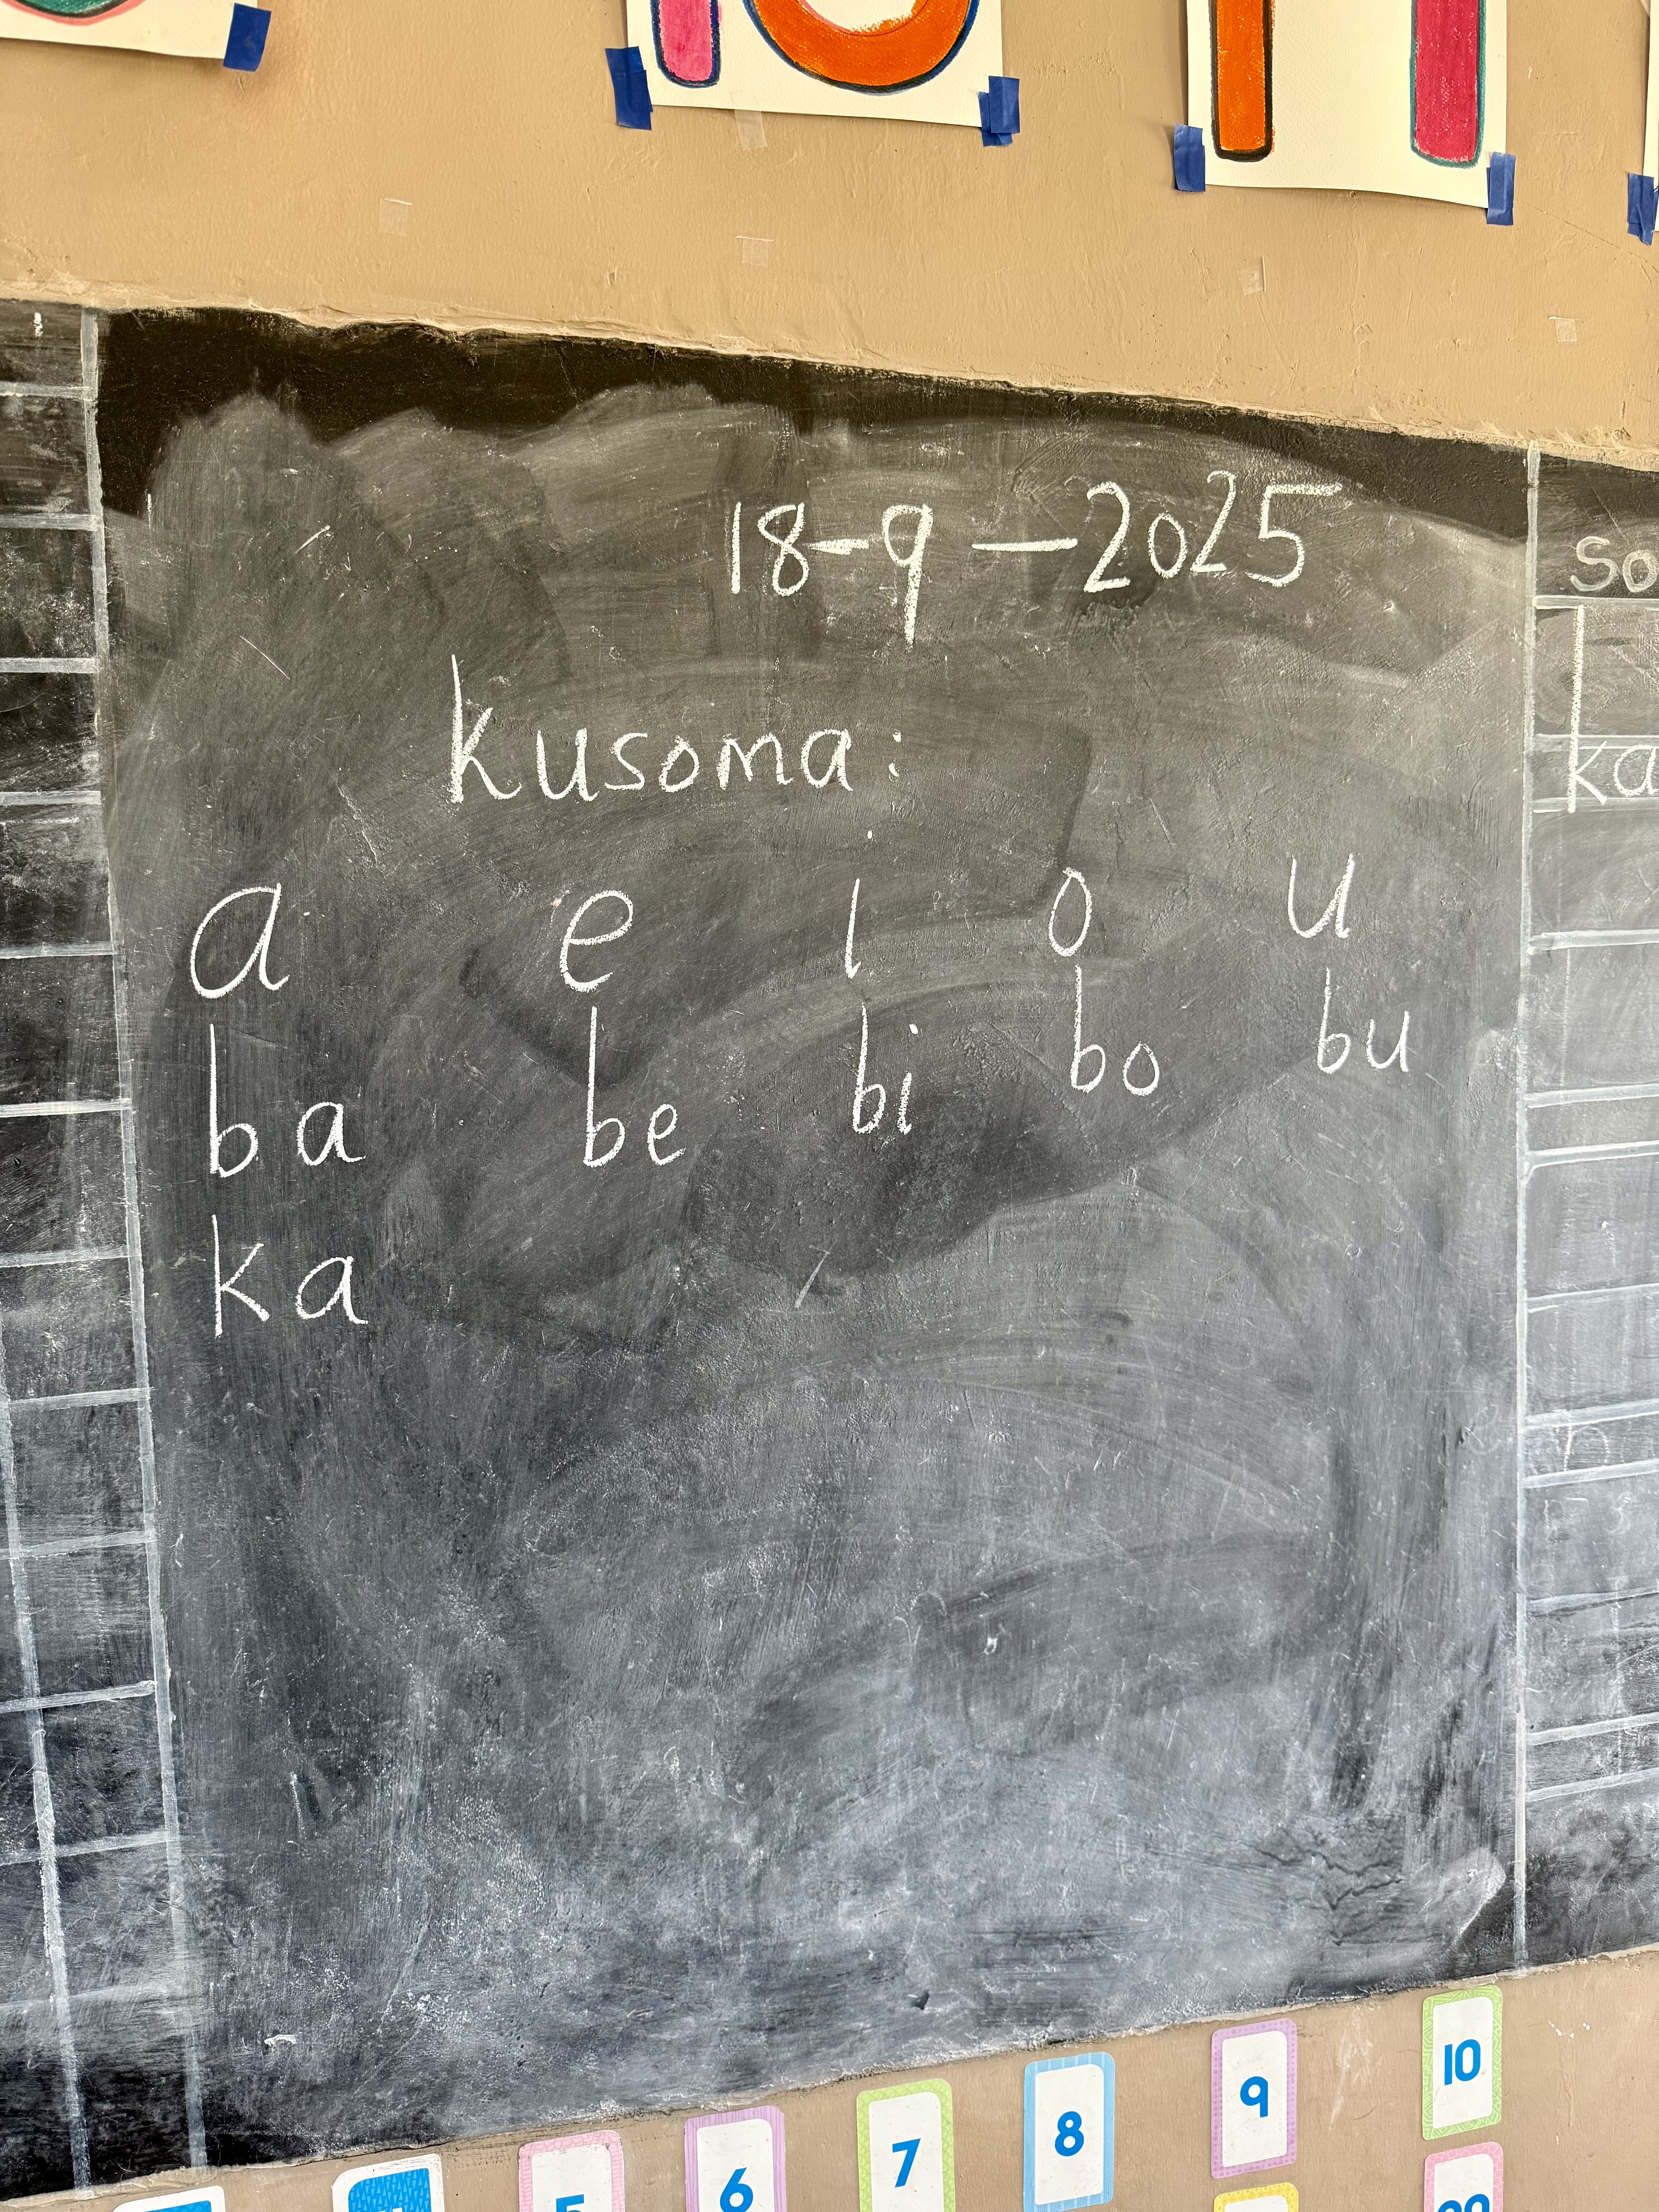 18-9-2025
kusoma:
a e i o u
ba be bi bo bu
ka
so
ka
10
9
8
7
6
5